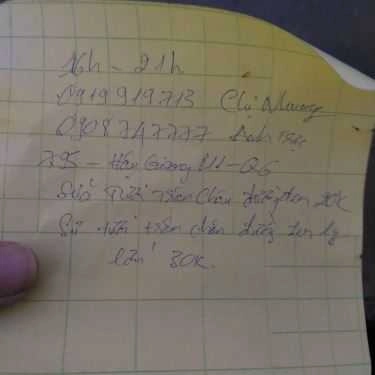 16h - 21h
0919919713 Chị Nhung
0908747777 Anh
795 - Hậu Giang P11-Q6
Sữa Tươi trân châu đường đen 20K
Sữa tươi trân châu đường đen ly
lớn 30K